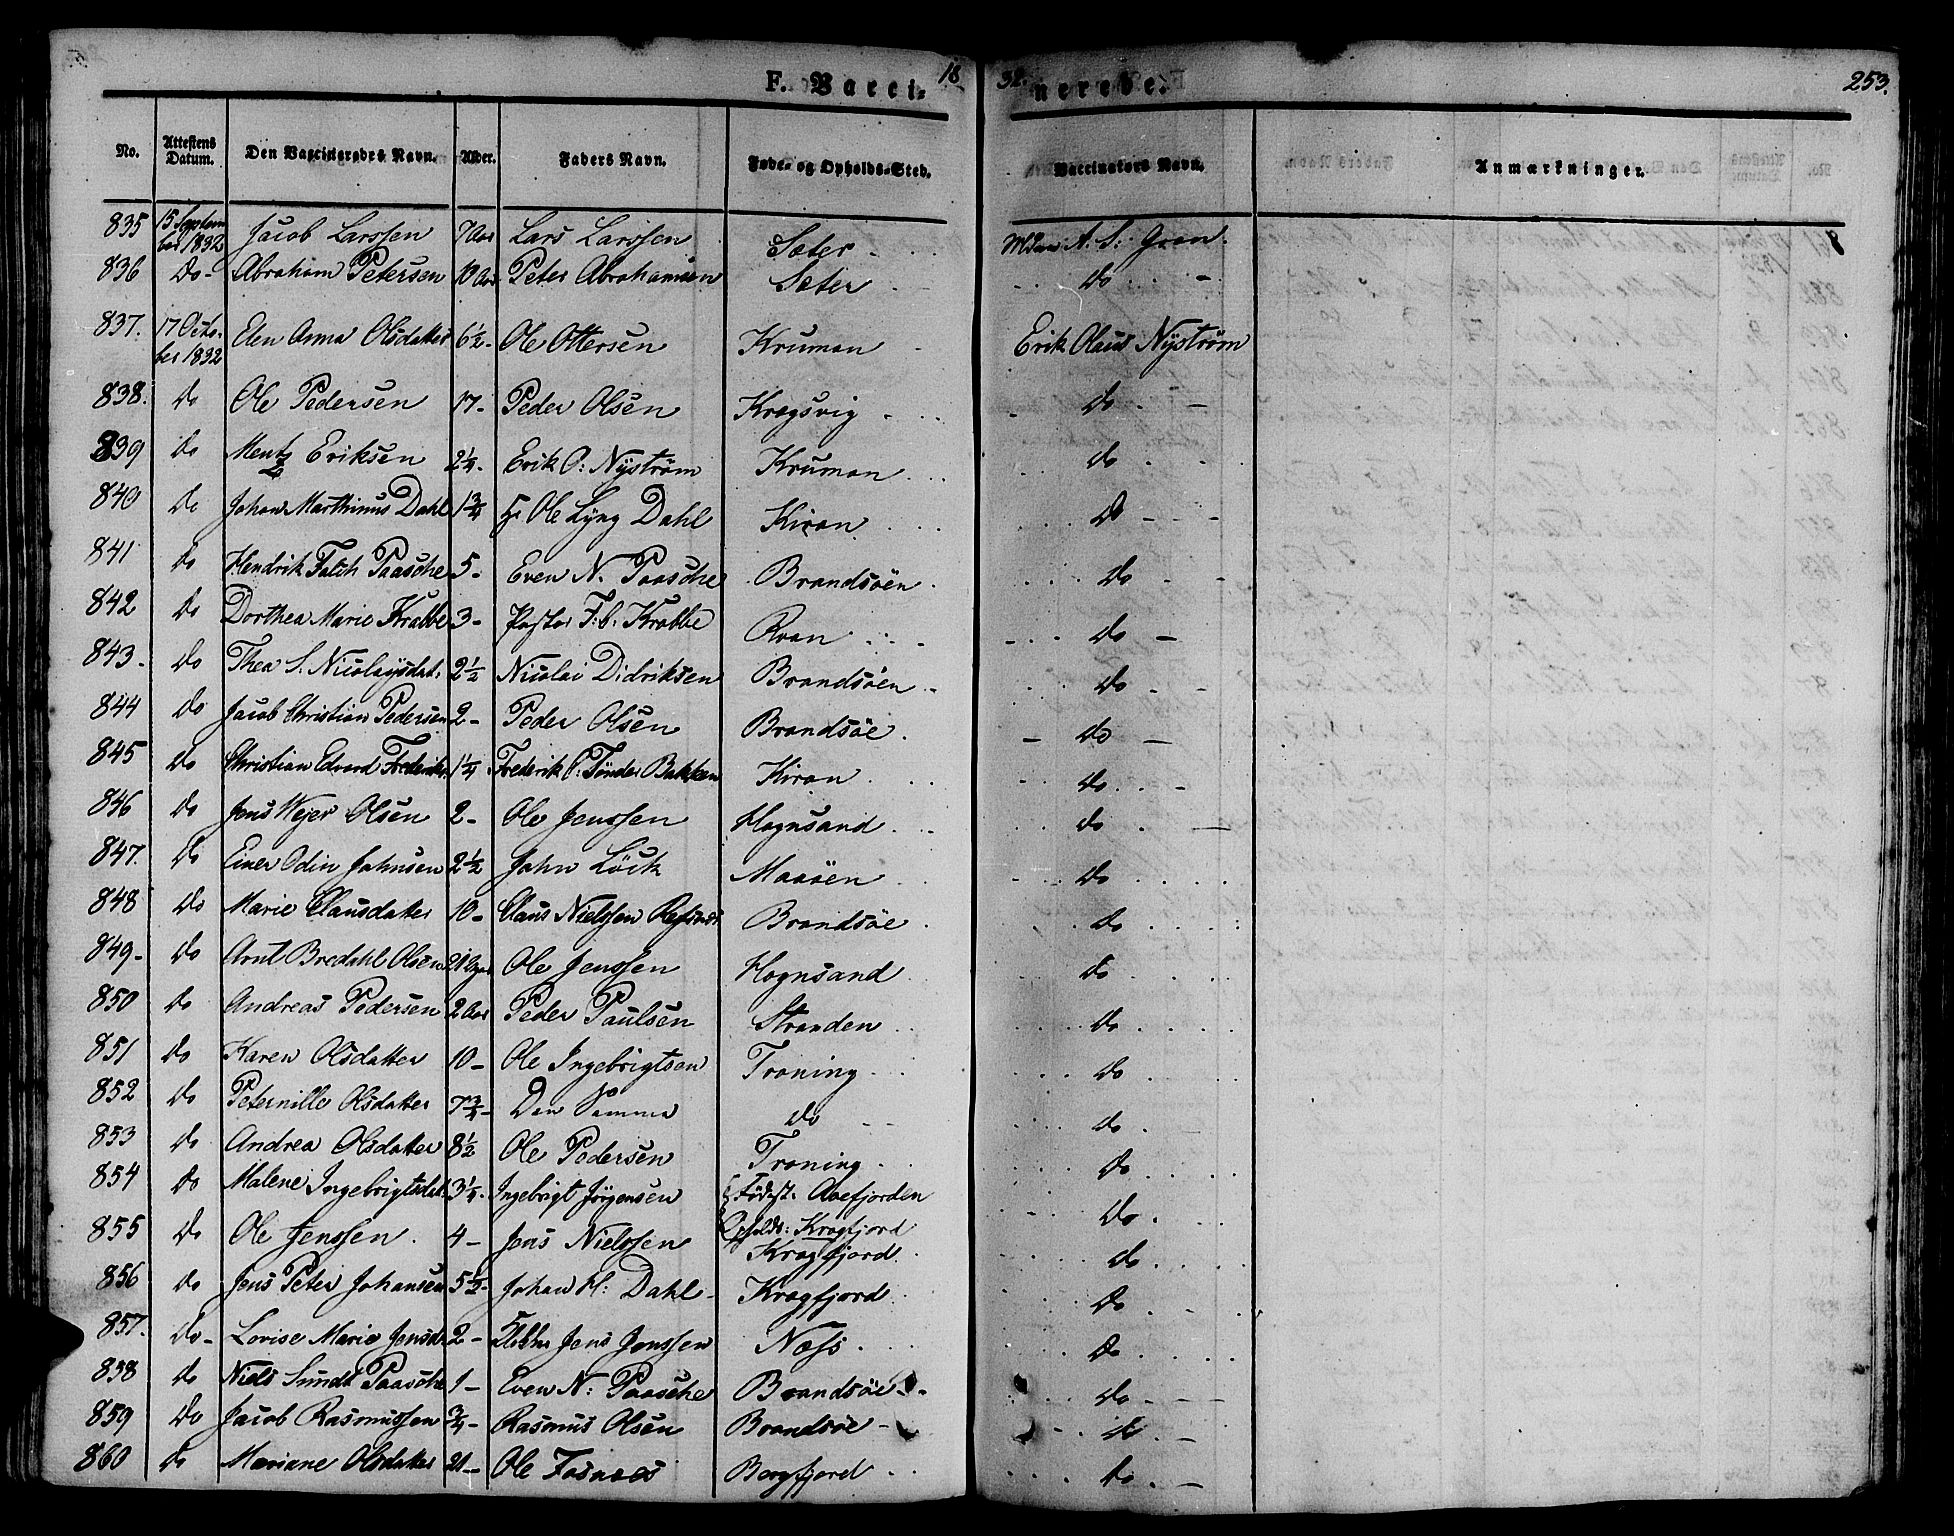 F. Vacci- 18
32. nerede. 253.
No. Attestens Datum. Den Vaccineredes Navn. Alder. Faders Navn. Føde- og Opholds-Sted. Vaccinators Navn. Anmærkninger.
835 15 Septem ber 1832 Jacob Larssen 7 Aar Lars Larssen Sæter A. S. Gran.
836 Do- Abraham Petersen 10 Aar Peter Abrahamsen Sæter do
837. 17 Octo- ber 1832 Elen Anna Olsdatter 6½- Ole Ottersen Kruman Erik Olaus Nyström
838. do Ole Pedersen 17- Peder Olsen Kragsvig do
839 do Mentz Eriksen 2¼- Erik O: Nyström Kruman do
840 do Johan Marthinus Dahl 1¾ Hr Ole Lyng Dahl Kiran do
841 do Hendrik Falch Paasche 5- Even N. Paasche Brandsöen do
842 do Dorthea Marie Krabbe 3- Pastor F: C: Krabbe Roan do
843- do Thea S. Nicolaysdat. 2½ Nicolai Didriksen Brandsöen do
844 do Jacob Christian Pedersen 2- Peder Olsen Brandsöe. do
845 do Christian Edvard Frederiks. 1¼ Frederik C: Tönder Bakken Kiran do
846 do Jens Wejer Olsen 2- Ole Jenssen Hognsand do
847. do Einer Odin Johnsen 2½ John Löck Maaöen do
848 do Marie Clausdatter 10- Claus Nielssen Refsnes Brandsöe do
849- do Arnt Bredahl Olsen 21 Uger Ole Jenssen Hognsand do
850 do Andreas Pedersen 2 Aar Peder Paulsen Stranden do
851 do Karen Olsdatter 10- Ole Ingebrigtsen Troning do
852 do Peternille Olsdatter 7¾- Den Samme do do
853 do Andrea Olsdatter 8½ Ole Pedersen Troning do
854 do Malene Ingebrigtsdat. 3¼- Ingebrigt Jörgensen Födest: Aaefjorden do
Opholds: Kragfjord
855 do Ole Jenssen. 4- Jens Nielssen Kragfjord. do
856 do Jens Peter Johansen 5½- Johan H: Dahl- Kragfjord do
857. do- Lovise Marie Jensd. 2- Jens Jenssen Næss do
858 do Niels Sundt Paasche 1- Even N: Paasche Brandsöe- do
859 do Jacob Rasmussen ¾- Rasmus Olsen Brandsöe- do
860 do Mariane Olsdatter 21- Ole Fosnæs Bergfjord do